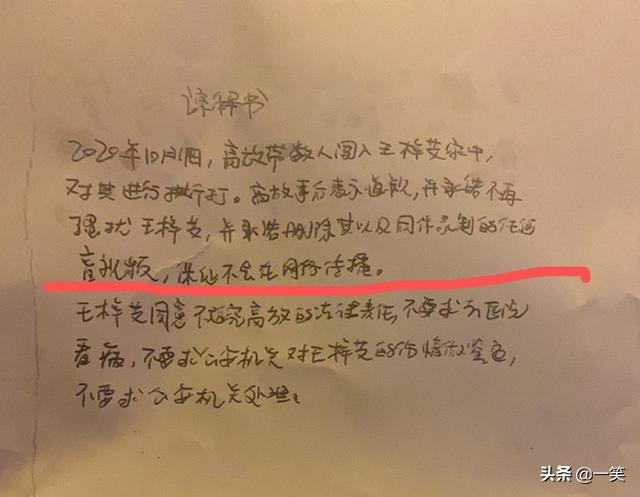 谅解书
2020年10月1日，高放带数人闯入王梓芠家中，
对其进行殴打。高放事后表示道歉，并承诺不再
骚扰王梓芠，并承诺删除其以及同伴录制的任何
音视频，保证不会在网络传播。
王梓芠同意不追究高放的法律责任，不要求去医院
看病，不要求公安机关对王梓芠的伤情做鉴定，
不要求公安机关处理。
头条 @一笑